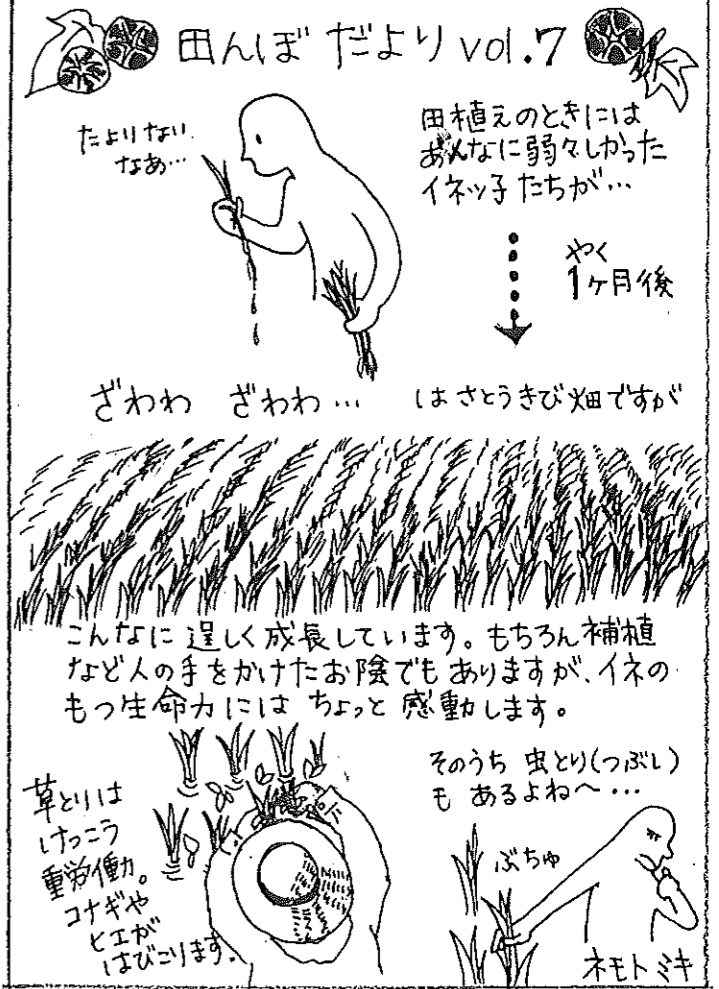 田んぼだより vol.7
たよりない
なあ…
田植えのときには
あんなに弱々しかった
イネッ子たちが…
やく
1ヶ月後
ざわわ ざわわ… はさとうきび畑ですが
こんなに逞しく成長しています。もちろん補植
など人の手をかけたお陰でもありますが、イネの
もつ生命力にはちょっと感動します。
草とりは
けっこう
重労働。
コナギや
ヒエが
はびこります。
そのうち 虫とり(つぶし)
も あるよね〜…
ぶちゅ
ネモトミキ